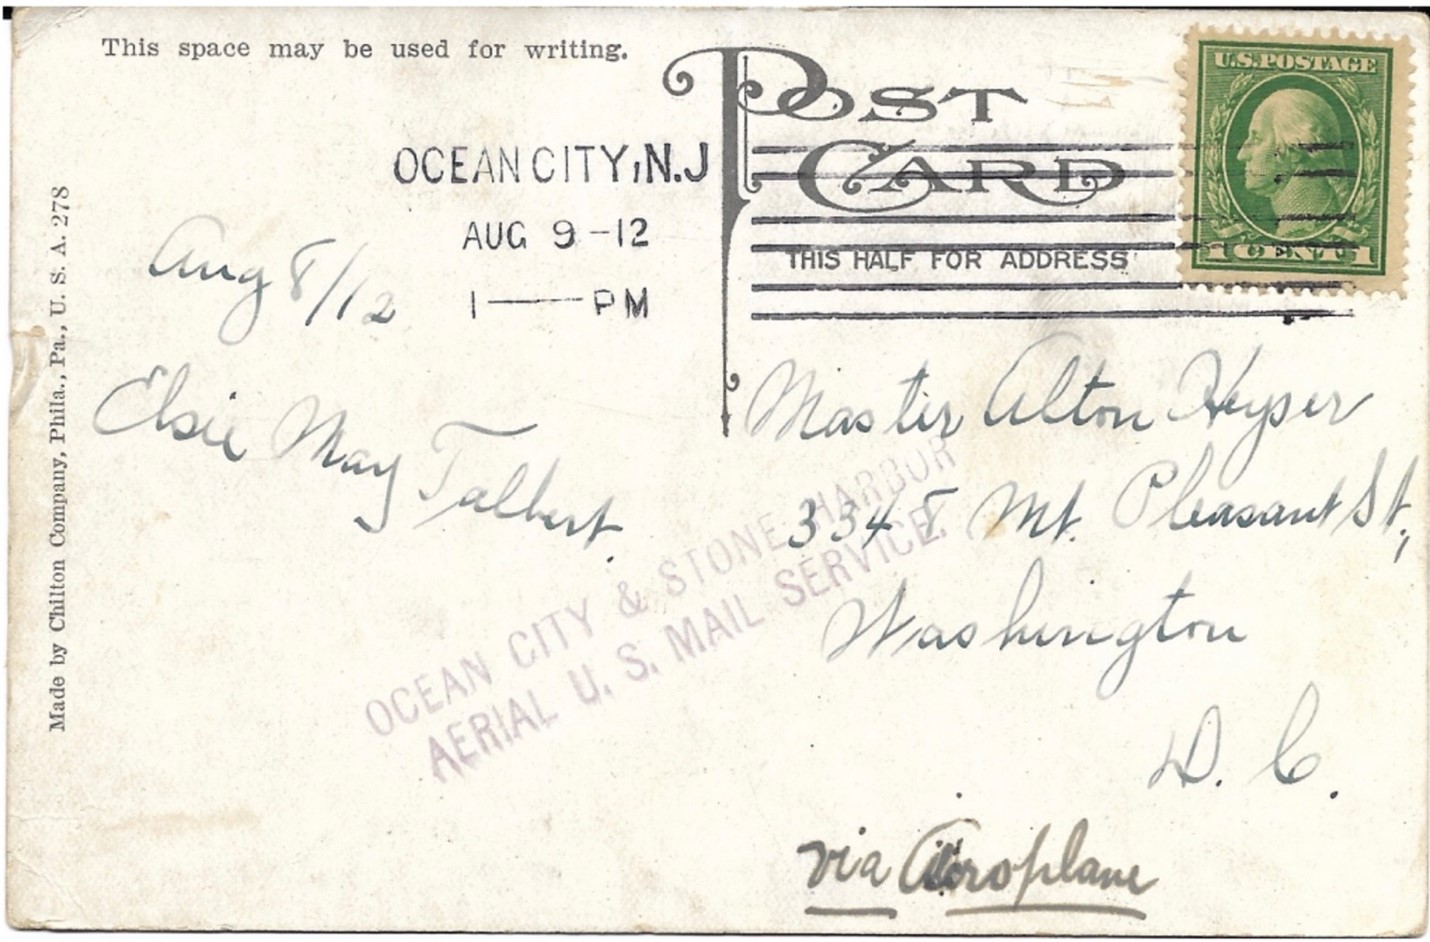 This space may be used for writing.
POST
CARD
U.S.POSTAGE
OCEAN CITY, N.J
AUG 9 -12
1 PM
THIS HALF FOR ADDRESS
1 CENT 1
Aug 8/12
Elsie May Talbert.
Master Alton Heyser
3348 Mt. Pleasant St.,
Washington
D. C.
OCEAN CITY & STONE HARBOR
AERIAL U. S. MAIL SERVICE.
via Aeroplane
Made by Chilton Company, Phila., Pa., U. S. A. 278